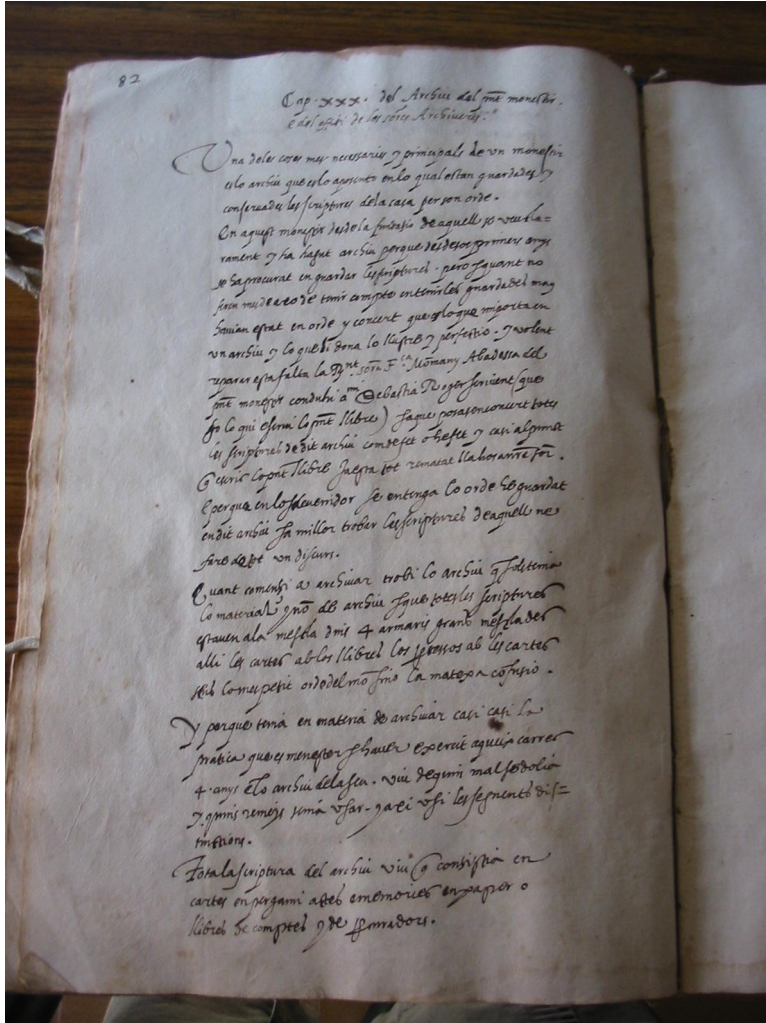 82
Cap. xxx. del Archiu del pnt monestir.
e del offici de les sores Archiveres.
Una de les coses mes necessaries y principals de un monestir
es lo archiu que es lo aposento en lo qual estan guardades y
conservades les scriptures de la casa per son orde.
En aquest monestir desde la fundasio de aquell se veu cla=
rament y ha hagut archiu perque desdesos primers anys
se ha procurat en guardar les scriptures. pero per quant no
feren mes de aço de tenir compte en tenirles guardades may
havian estat en orde y concert que es lo que importa en
un archiu y lo que li dona lo llustre y perfectio. y volent
reparar esta falta la Rnt. sora Momany Abadessa del
pnt monestir conduhi a mr Sebastia Roger scrivent (que
so lo qui escrui lo pnt llibre) pa que posas en concert totes
les scriptures de dit archiu com de fet o he fet y casi al punt
q escric lo pnt llibre ja esta tot rematat
E perque en lo sdevenidor se entenga lo orde he guardat
en dit archiu pa millor trobar les scriptures de aquell ne
fare de tot un discurs.
Quant comensi a archivar trobi lo archiu q sols tenia
lo material y no de archiu pque totes les scriptures
estaven a la mescla dins 4 armaris grans mesclades
alli les cartes ab los llibres los prossos ab les cartes
sens lo mes petit orde del mon sino la matexa confusio.
Y perque tenia en materia de archivar casi casi la
pratica que es menester p haver exercit aquexa carrec
4 anys e lo archiu de la seu. viu de quin mal se dolia
y quins remeys tenia usar. y axi usi les seguents dis=
tinctions.
Tota la scriptura del archiu viu q consistia en
cartes en pergami actes e memories en paper o
llibres de comptes y de